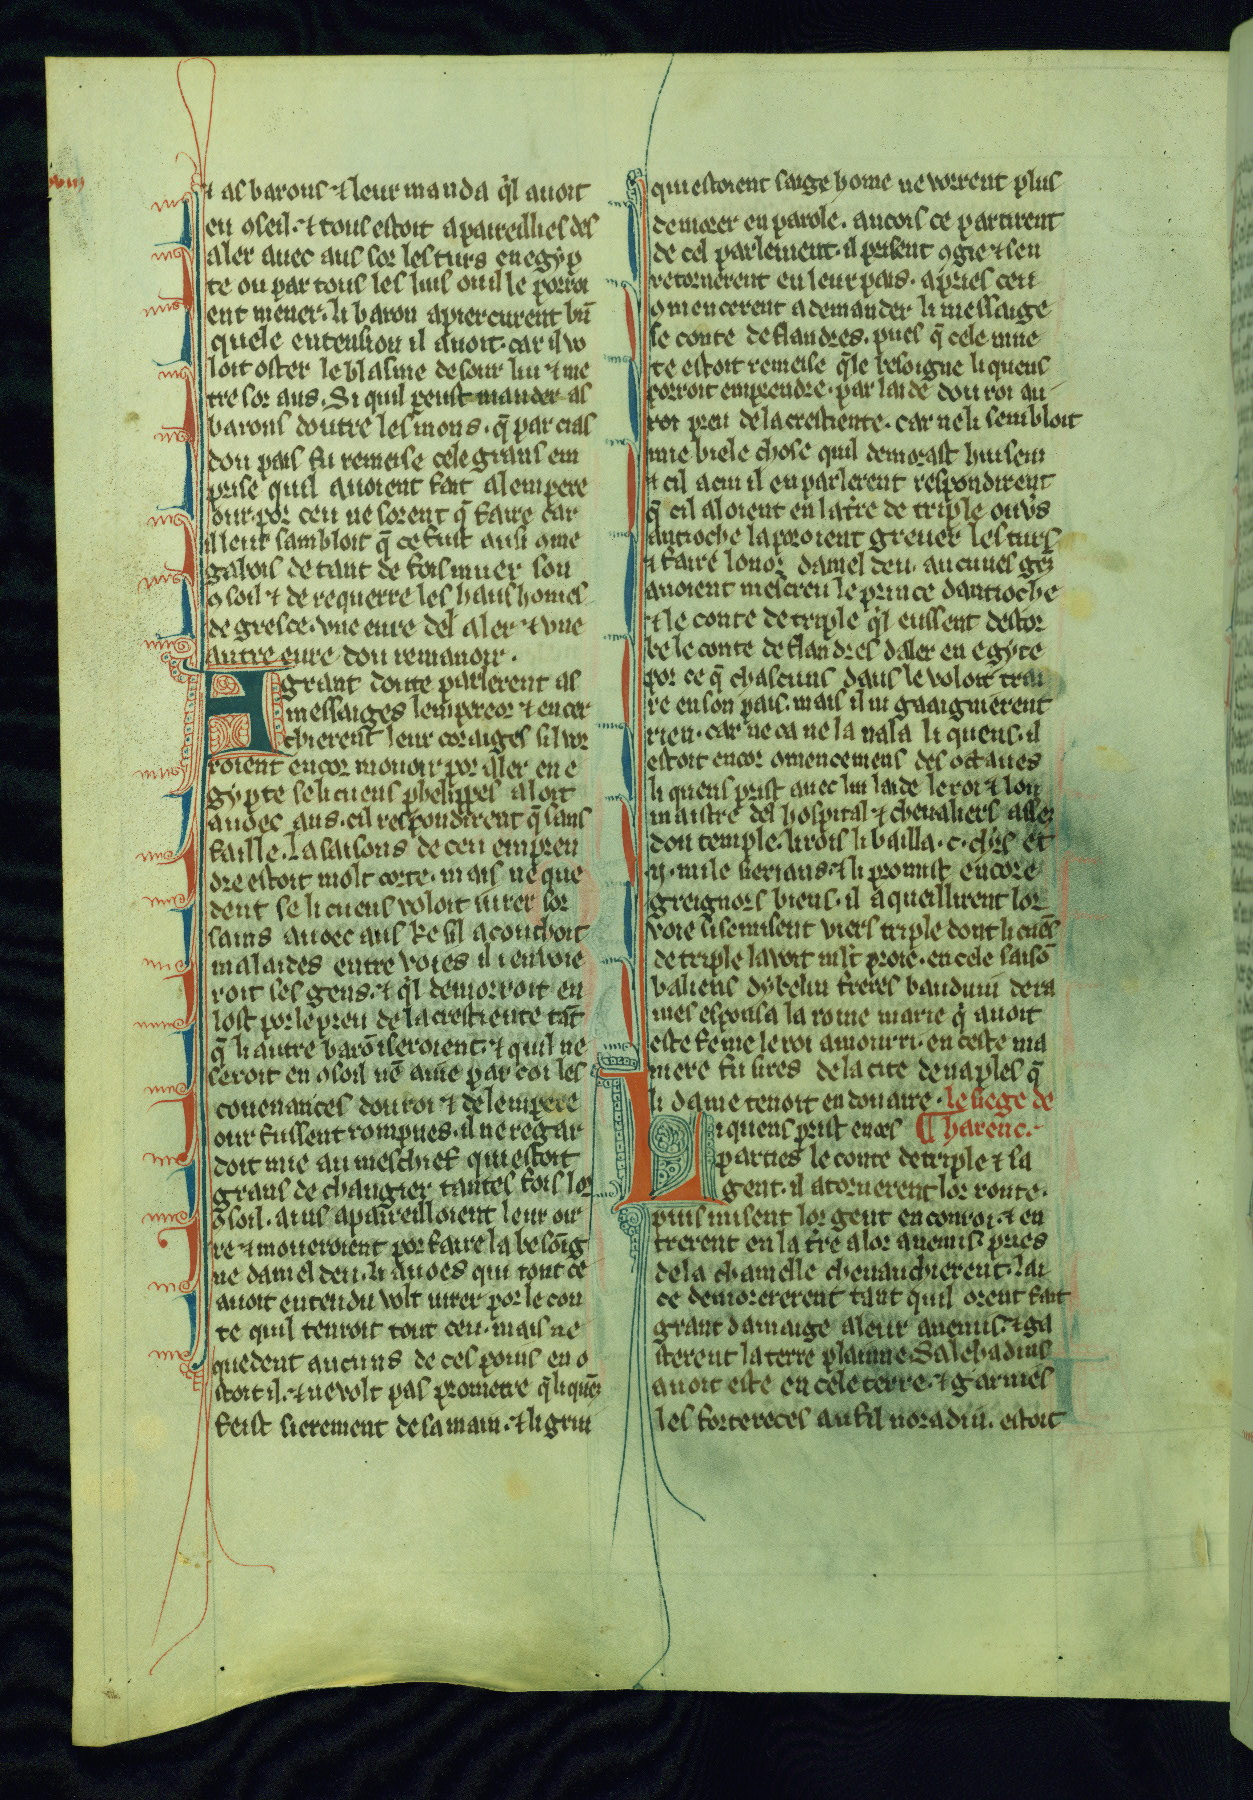 ⁊ as barons ⁊ leur manda q̓l auoit
en ꝯseil. ⁊ tous estoit apareillies des
aler auec aus sor les turs en egyp
te ou par tous les lius ou il le porroi
ent mener. li baron apiercurent bn̄
quele entension il auoit. car il vo
loit oster le blasme desour lui ⁊ me
tre sor aus. Si quil peust mander as
barons doutre les mons. q̄ par ciaus
dou pais fu remeise cele grans em
prise quil auoient fait al empere
our. por ceu ne sorent q̄ faire car
il leur sambloit q̄ ce fust ausi ꝯme
gabois de tant de fois muer son
ꝯsoil ⁊ de requerre les haus homes
de gresce. vne eure del aler ⁊ vne
autre eure dou remanoir.
A grant doute parlerent as
messaiges lempereor ⁊ encer
chierent leur coraiges sil vor
roient encor mouoir por aler en e
gypte se li cuens phelippes aloit
auoec aus. cil respondirent q̄ sans
faille. la saisons de ceu empren
dre estoit molt corte. mais ne que
dent se li cuens voloit iurer sor
sains auoec aus ke sil acouchoit
malaides entre voies il i enuoie
roit ses gens. ⁊ q̓l demorroit en
lost por le preu de la crestiente tāt
q̄ li autre barō iseroient. ⁊ quil ne
seroit en ꝯsoil nē aīme par coi les
couenances dou roi ⁊ de lempere
our fussent rompues. il ne regar
doit mie au meschief qui estoit
grans de changier tantes fois lor
ꝯsoil. ains apaireilloient leur oir
re ⁊ moueroient por faire la besoīg
ne damel deu. li auoes qui tout ce
auoit entendu volt iurer por le con
te quil tenroit tout ceu. mais ne
quedent aucuns de ces poins en o
stoit il. ⁊ ne volt pas prometre q̄ li quēs
feist sierement de sa main. ⁊ li griu
qui estoient saige home ne vorrent plus
demorer en parole. ancois ce partirent
de cel parlement. il prisent ꝯgie ⁊ sen
retornerent en leur pais. apries ceu
ꝯmencerent a demander li messaige
le conte de flandres. pues q̄ cele mue
te estoit remeise q̄le besoigne li quens
porroit emprendre. par laide dou roi au
roi preu de la crestiente. car ne li sembloit
mie biele chose quil demorast huiseus
⁊ cil a cui il en parlerent respondirent
q̄ cil aloient en la tr̄re de triple ou v̓s
antioche la poroient greuer les turs
⁊ faire lonor damel deu. aucunes gēs
auoient mescreu le prince dantioche
⁊ le conte de triple q̓l eussent destor
be le conte de flandres daler en egypte
por ce q̄ chascuns daus le voloit trai
re en son pais. mais il ni gaaignierent
rien. car ne ca ne la nala li quens. il
estoit encor ꝯmencemens des octaues
li quens prist auec lui laide le roi ⁊ lou
maistre del hospital ⁊ cheualiers asses
dou temple. li rois li bailla .c. chr̄s et
.ij. mile serians. ⁊ li promist encore
greignors biens. il aqueillirent lor
voie si semisent viers triple dont li cuēs
de triple lauoit ml̓t proie. en cele saisō
baliens dybelin freres bauduin de ra
mes espousa la roine marie q̄ auoit
este feme le roi amourri. en ceste ma
niere fu sires de la cite de naples q̄
li dame tenoit en douaire. le siege de
Harenc.
Li quens prist en ces
parties le conte de triple ⁊ sa
gent. il atornerent lor route.
puis misent lor gent en conroi. ⁊ en
trerent en la tr̄re a lor anemis. pries
de la chamelle cheuauchierent. lai
ce demorererent tant quil orent fait
grant damaige a leur anemis. ⁊ ga
sterent la terre plainne. Salehadins
auoit este en cele terre. ⁊ garnies
les fortereces au fil noradin. estoit